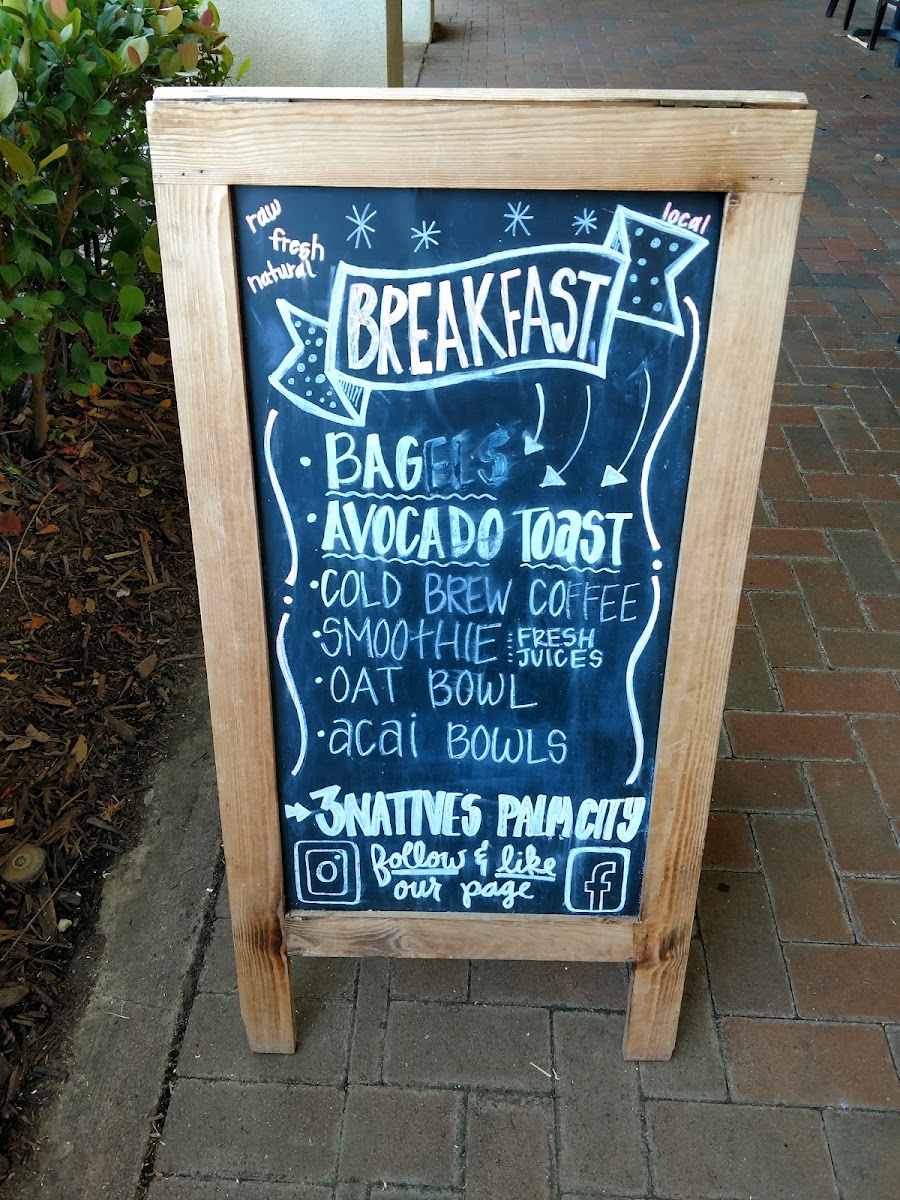 raw
fresh
natural
local
BREAKFAST
• BAGELS
• AVOCADO TOAST
• COLD BREW COFFEE
• SMOOTHIE : FRESH JUICES
• OAT BOWL
• acai BOWLS
→ 3NATIVES PALM CITY
follow & like
our page
f